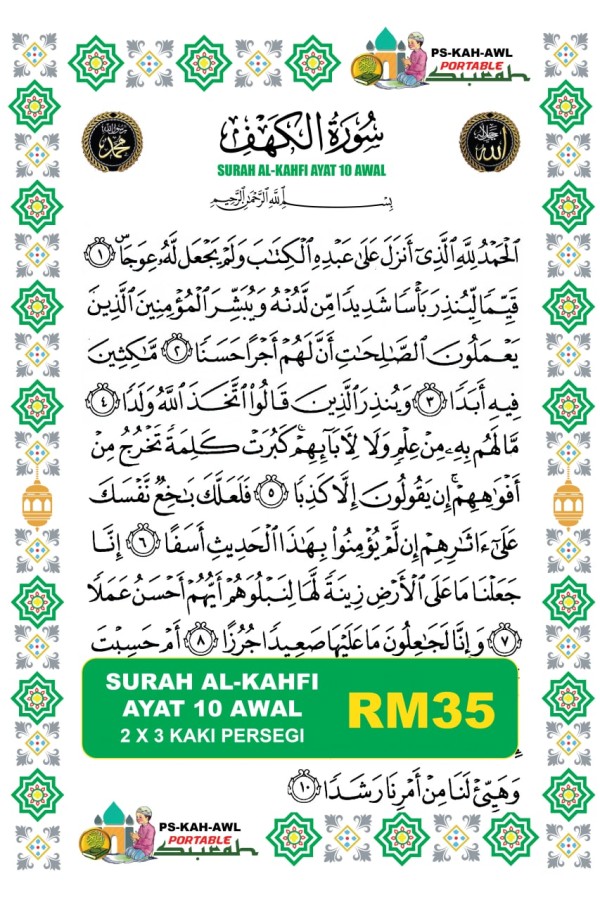 PS-KAH-AWL
PORTABLE
Surah
سُورَةُ الكَهْفِ
SURAH AL-KAHFI AYAT 10 AWAL
محمد
رسول الله
الله
جل جلاله
بِسْمِ اللَّهِ الرَّحْمَٰنِ الرَّحِيمِ
الْحَمْدُ لِلَّهِ الَّذِي أَنزَلَ عَلَىٰ عَبْدِهِ الْكِتَٰبَ وَلَمْ يَجْعَل لَّهُ عِوَجًا ۜ ١
قَيِّمًا لِّيُنذِرَ بَأْسًا شَدِيدًا مِّن لَّدُنْهُ وَيُبَشِّرَ الْمُؤْمِنِينَ الَّذِينَ
يَعْمَلُونَ الصَّالِحَاتِ أَنَّ لَهُمْ أَجْرًا حَسَنًا ٢ مَّاكِثِينَ
فِيهِ أَبَدًا ٣ وَيُنذِرَ الَّذِينَ قَالُوا اتَّخَذَ اللَّهُ وَلَدًا ٤
مَّا لَهُم بِهِ مِنْ عِلْمٍ وَلَا لِآبَائِهِمْ ۚ كَبُرَتْ كَلِمَةً تَخْرُجُ مِنْ
أَفْوَاهِهِمْ ۚ إِن يَقُولُونَ إِلَّا كَذِبًا ٥ فَلَعَلَّكَ بَاخِعٌ نَّفْسَكَ
عَلَىٰ ءَاثَارِهِمْ إِن لَّمْ يُؤْمِنُوا بِهَٰذَا الْحَدِيثِ أَسَفًا ٦ إِنَّا
جَعَلْنَا مَا عَلَى الْأَرْضِ زِينَةً لَّهَا لِنَبْلُوَهُمْ أَيُّهُمْ أَحْسَنُ عَمَلًا
٧ وَإِنَّا لَجَاعِلُونَ مَا عَلَيْهَا صَعِيدًا جُرُزًا ٨ أَمْ حَسِبْتَ
SURAH AL-KAHFI
AYAT 10 AWAL
2 X 3 KAKI PERSEGI
RM35
وَهَيِّئْ لَنَا مِنْ أَمْرِنَا رَشَدًا ١٠
PS-KAH-AWL
PORTABLE
Surah